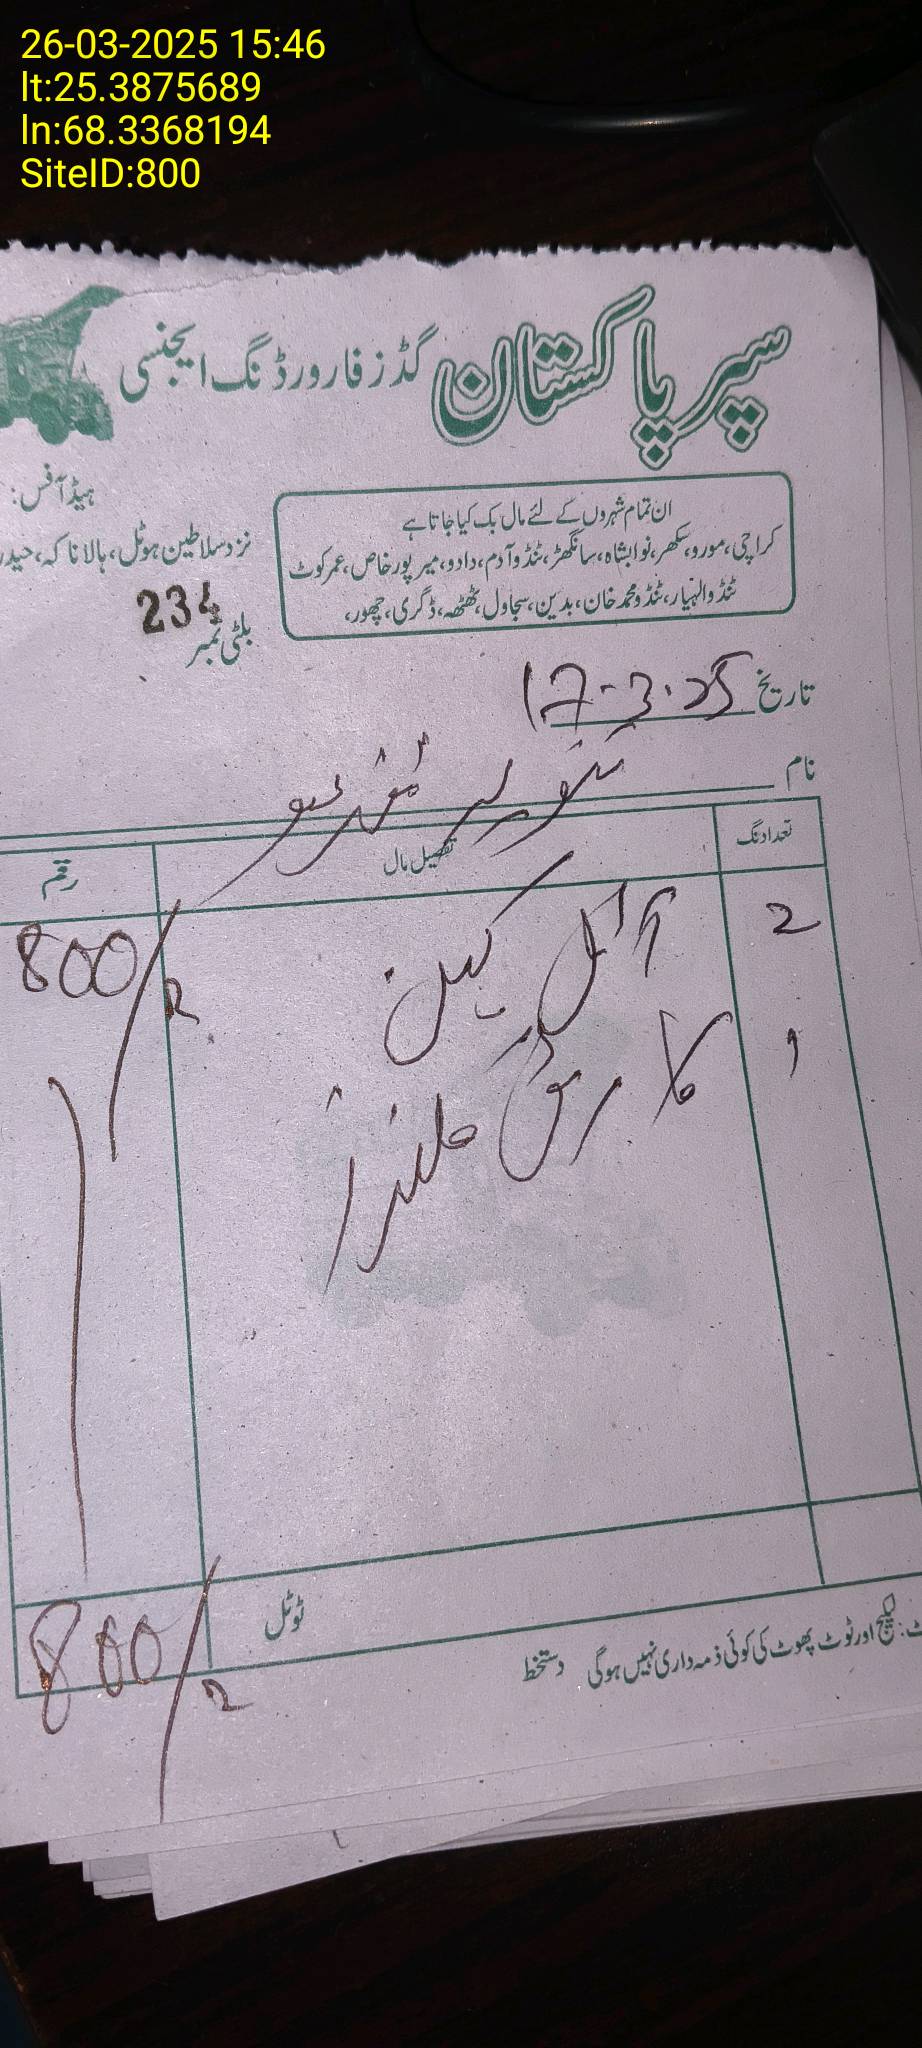 26-03-2025 15:46
lt:25.3875689
ln:68.3368194
SiteID:800
سپر پاکستان گڈز فارورڈنگ ایجنسی
ہیڈ آفس:
نزد سلاطین ہوٹل، ہالا ناکہ، حیدر
ان تمام شہروں کے لئے مال بک کیا جاتا ہے
کراچی، مورو، سکھر، نوابشاہ، سانگھڑ، ٹنڈو آدم، دادو، میرپور خاص، عمرکوٹ
ٹنڈو الہیار، ٹنڈو محمد خان، بدین، سجاول، ٹھٹھہ، ڈگری، چھور،
بلٹی نمبر 234
تاریخ 17-3-25
نام
تعداد نگ تفصیل مال رقم
2 آئل کین 800/
1 کارٹن
ٹوٹل 800/
لیکج اور ٹوٹ پھوٹ کی کوئی ذمہ داری نہیں ہوگی دستخط